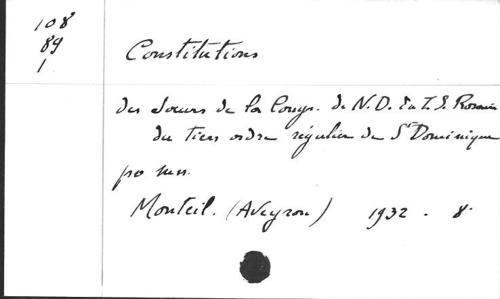 108
89
1
Constitutions
des Soeurs de la Congr. de N.D. du T. S. Rosaire
du Tiers ordre régulier de St Dominique
pro mss.
Monteil. (Aveyron) 1932 - 8°